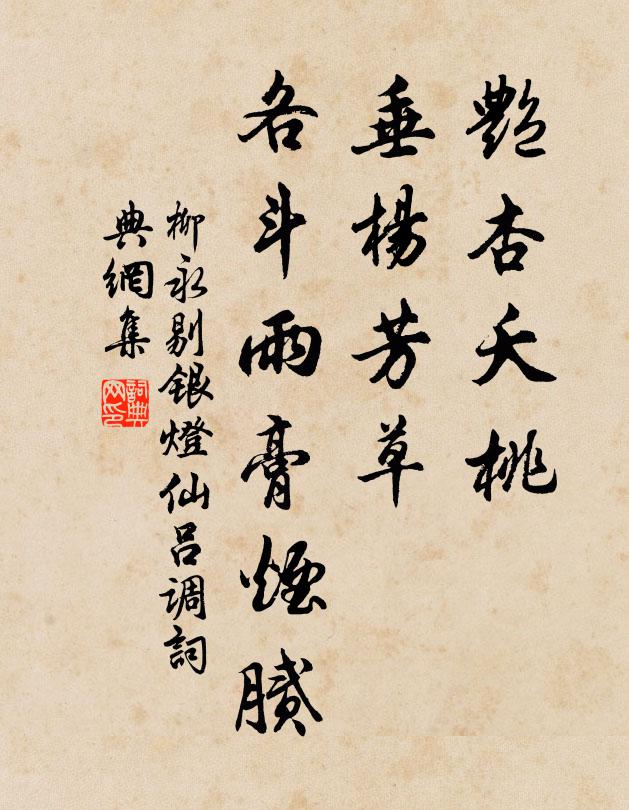 艷杏夭桃
垂楊芳草
各斗雨膏煙膩
柳永剔銀燈仙呂調詞
典網集
詞典网印